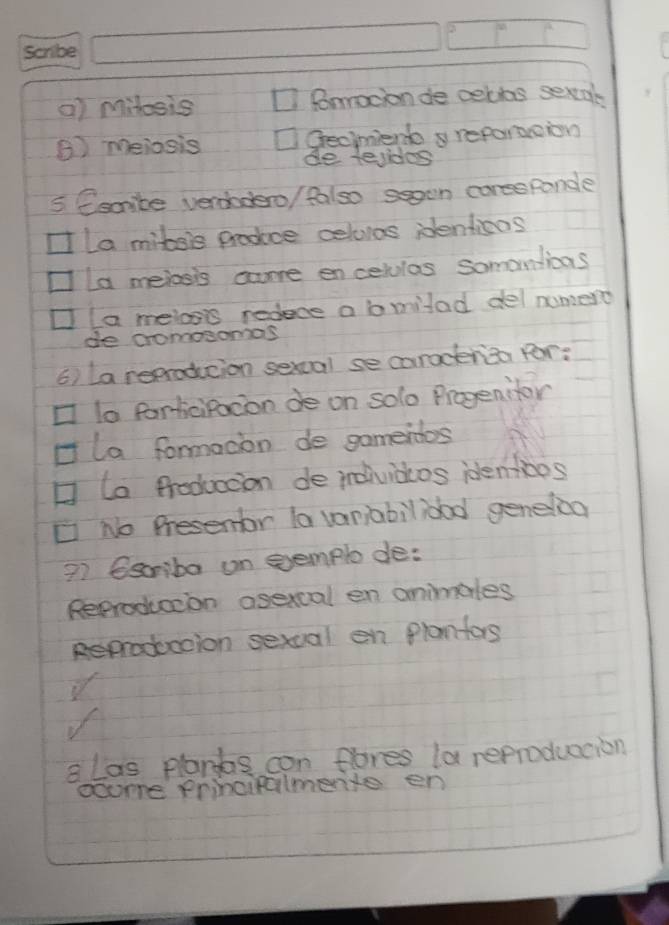 Scribe
a) Mitosis □ Formacion de celulas sexual
B) Meiosis □ Crecimiento y reparacion
de tejidos
5 Escribe verdadero/falso segun coresponde
□ La mitosis produce celulas identicas
□ La meiosis ocurre en celulas somanticas
□ La meiosis redece a la mitad del numero
de cromosomas
6) La reproducion sexual se caracteriza por:
□ la Participacion de un solo Progenitor
□ La formacion de gameidos
□ La Produccion de individuos identicos
□ No Presentar la variabilidad genetica
7) Escriba un ejemplo de:
Reproduccion asexual en animales
Reproduccion sexual en plantas
✓
✓
8 Las plantas con flores la reproduccion
ocurre principalmente en